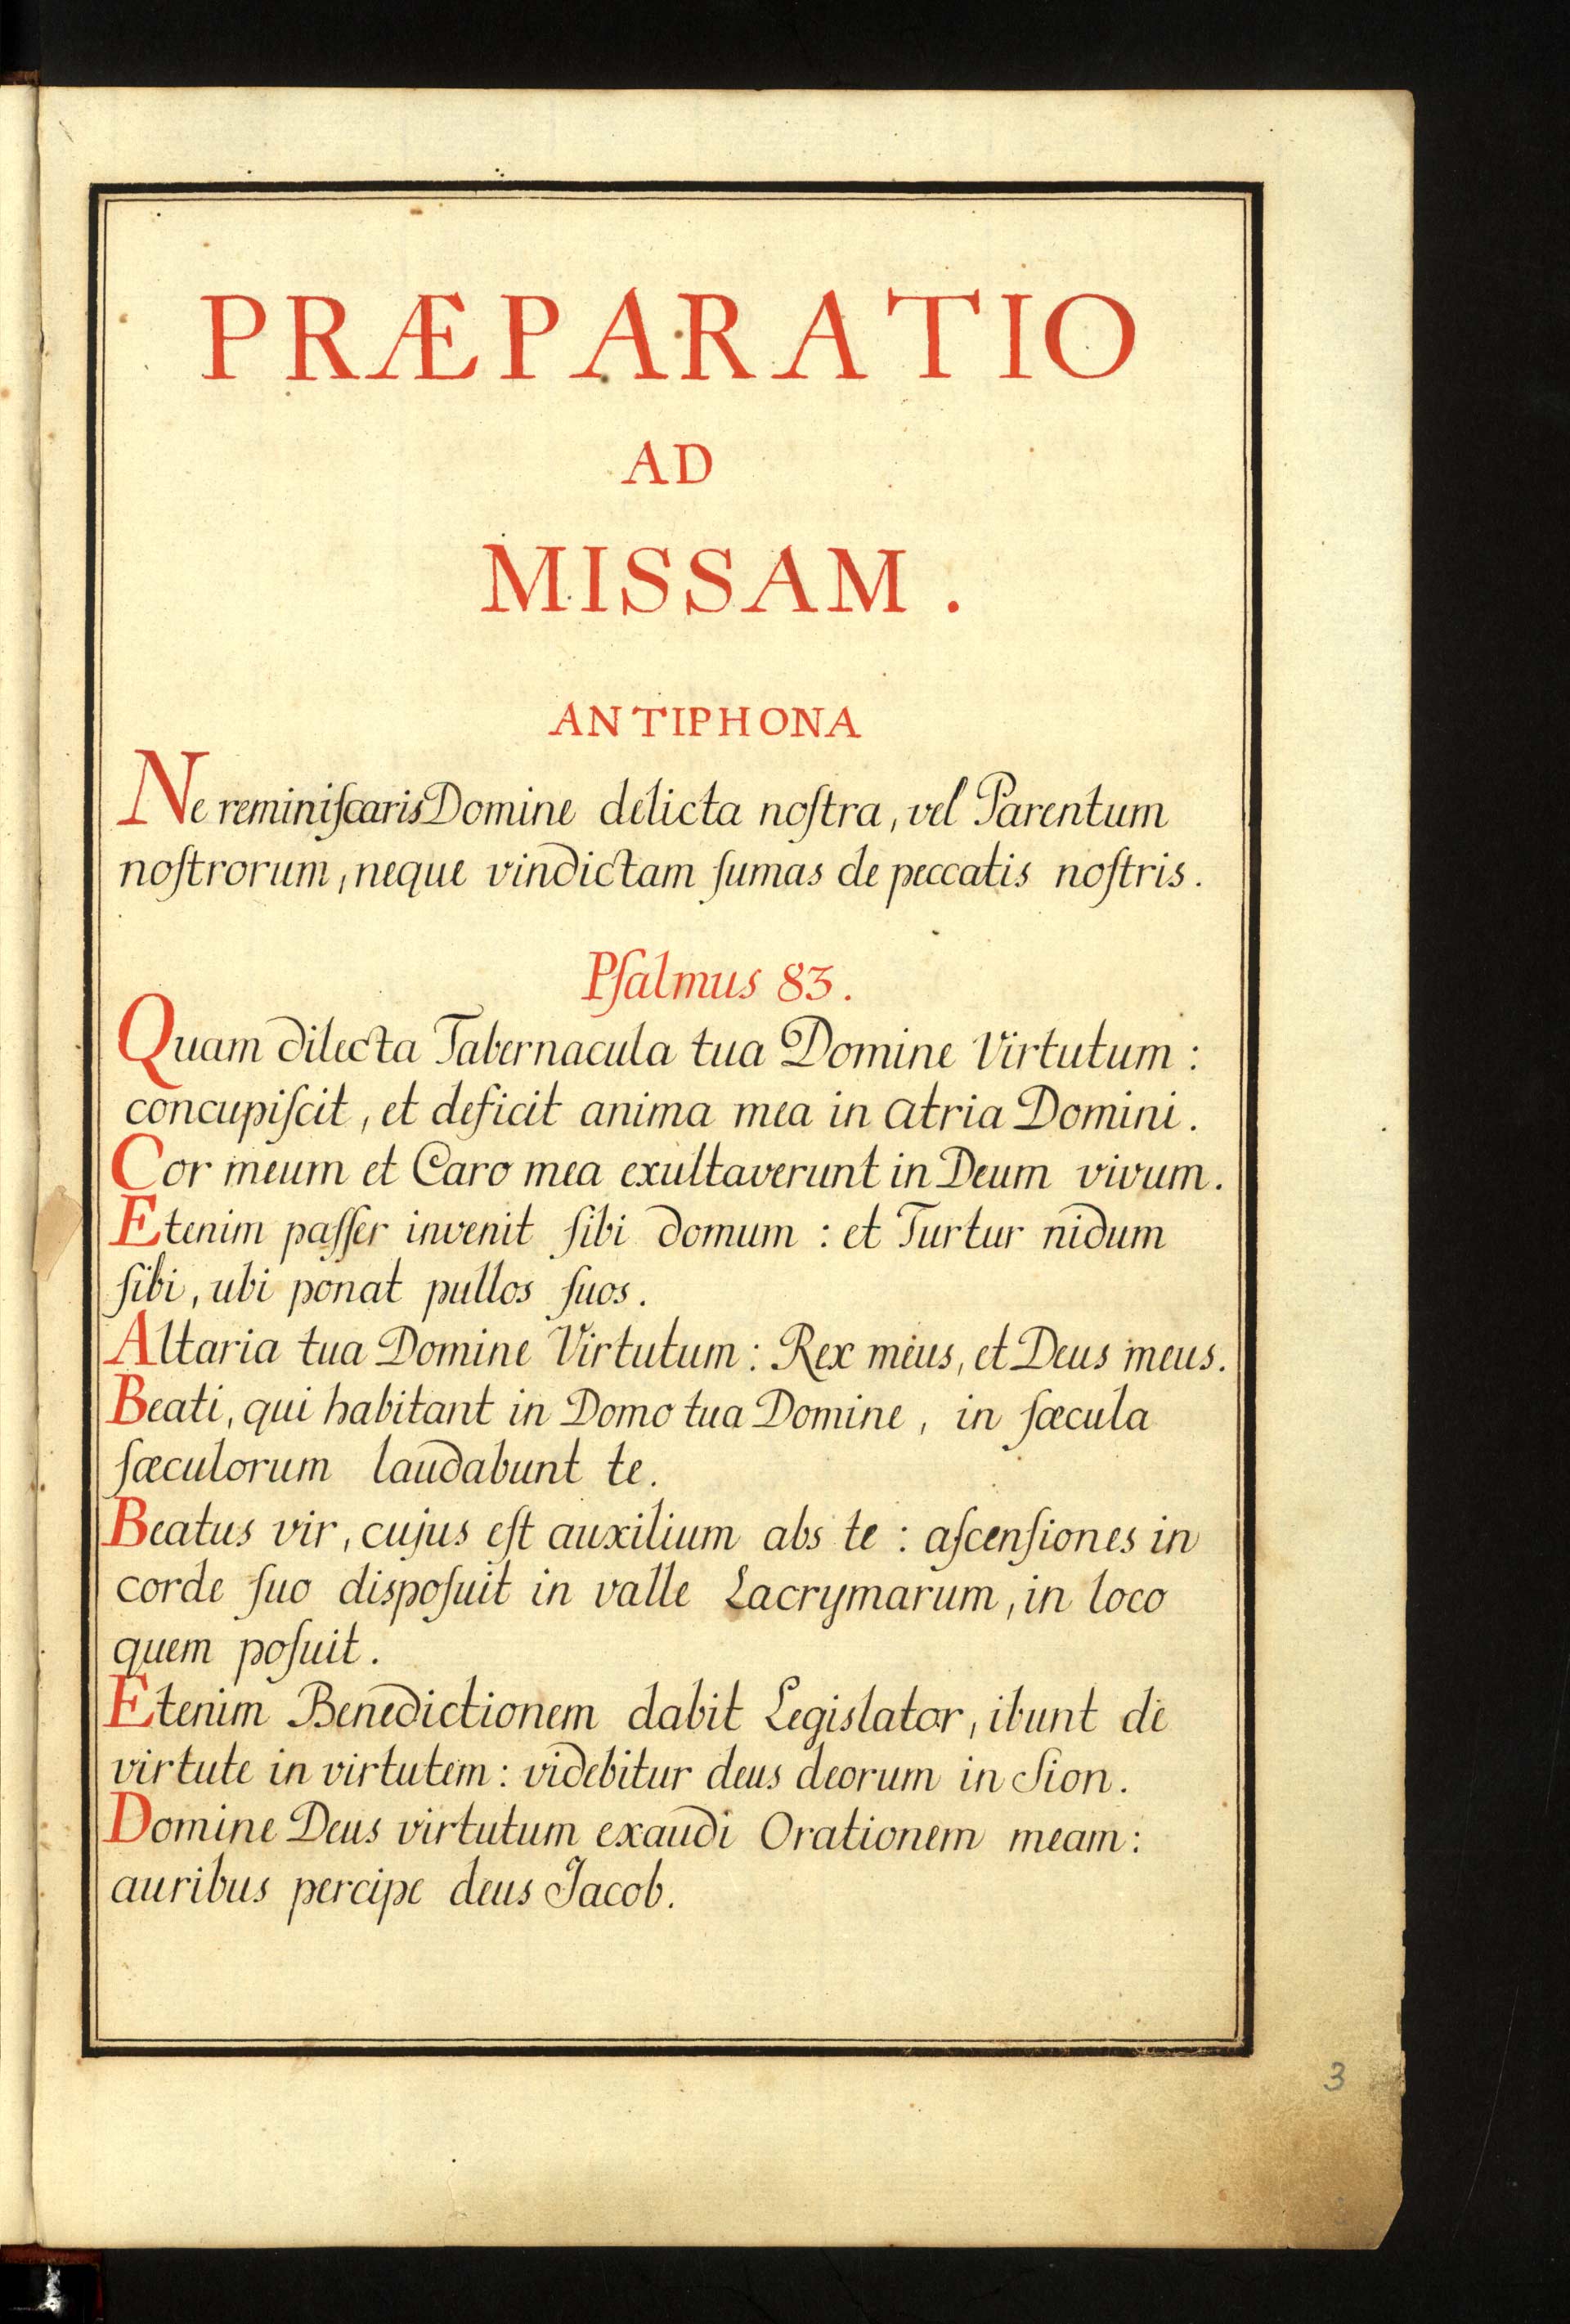 PRÆPARATIO
AD
MISSAM.
ANTIPHONA
Ne reminiſcaris Domine delicta noſtra, vel Parentum
noſtrorum, neque vindictam ſumas de peccatis noſtris.
Pſalmus 83.
Quam dilecta Tabernacula tua Domine Virtutum:
concupiſcit, et deficit anima mea in atria Domini.
Cor meum et Caro mea exultaverunt in Deum vivum.
Etenim paſſer invenit ſibi domum: et Turtur nidum
ſibi, ubi ponat pullos ſuos.
Altaria tua Domine Virtutum: Rex meus, et Deus meus.
Beati, qui habitant in Domo tua Domine, in ſæcula
ſæculorum laudabunt te.
Beatus vir, cujus eſt auxilium abs te: aſcenſiones in
corde ſuo dispoſuit in valle Lacrymarum, in loco
quem poſuit.
Etenim Benedictionem dabit Legislator, ibunt de
virtute in virtutem: videbitur deus deorum in Sion.
Domine Deus virtutum exaudi Orationem meam:
auribus percipe deus Jacob.
3